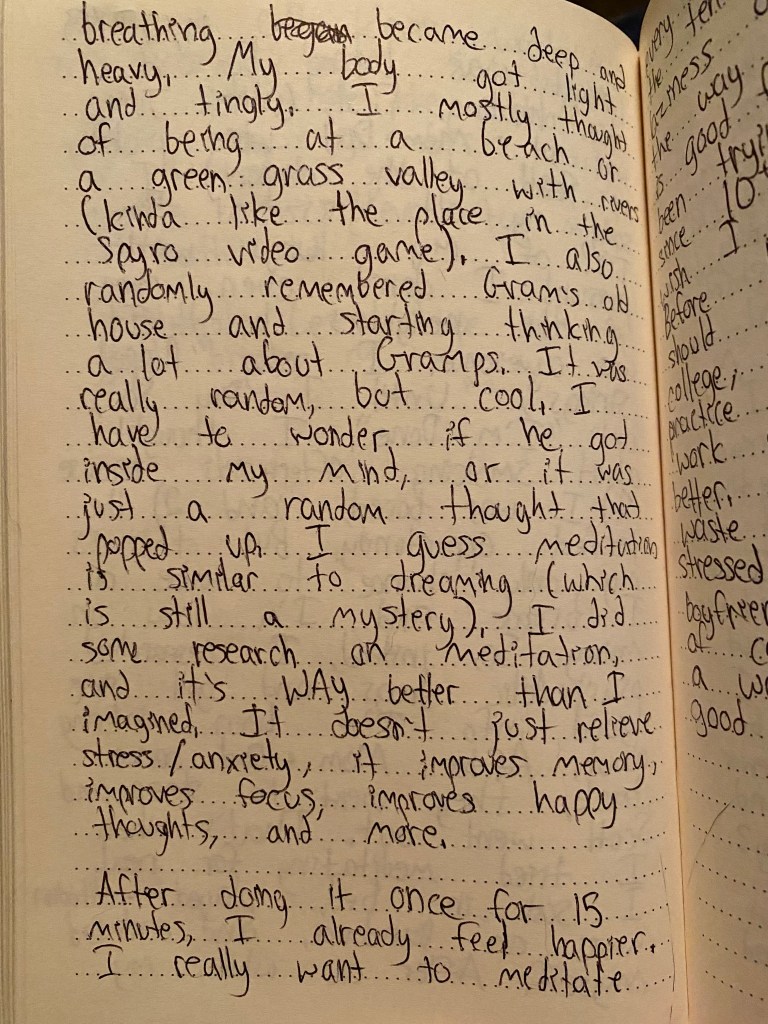 breathing began became deep and
heavy. My body got light
and tingly. I mostly thought
of being at a beach or
a green grass valley with rivers
(kinda like the place in the
Spyro video game). I also
randomly remembered Gram's old
house and starting thinking
a lot about Gramps. It was
really random, but cool. I
have to wonder if he got
inside my mind, or it was
just a random thought that
popped up. I guess meditation
is similar to dreaming (which
is still a mystery). I did
some research on meditation,
and it's WAY better than I
imagined. It doesn't just relieve
stress/anxiety, it improves memory,
improves focus, improves happy
thoughts, and more.
After doing it once for 15
minutes, I already feel happier.
I really want to meditate
every
the
the way
is good
been
since I
wish
Before
should
college,
practice
work
better.
waste
stressed
at
a
good